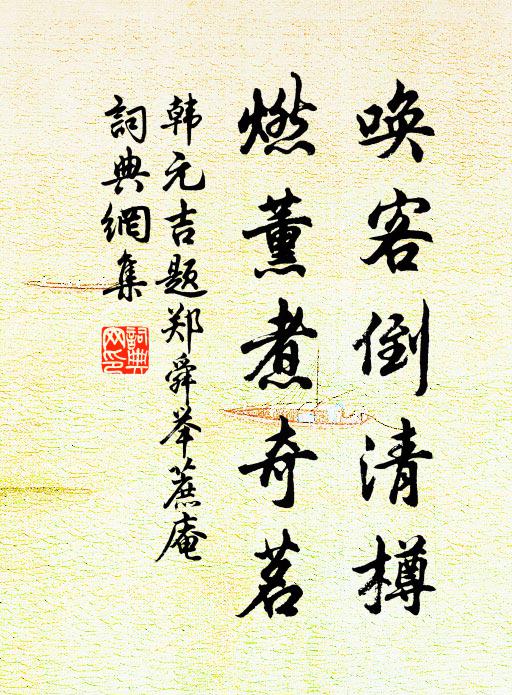 唤客倒清樽
燃薰煮奇茗
韩元吉题郑舜举蔗庵
詞典網集
詞典网印